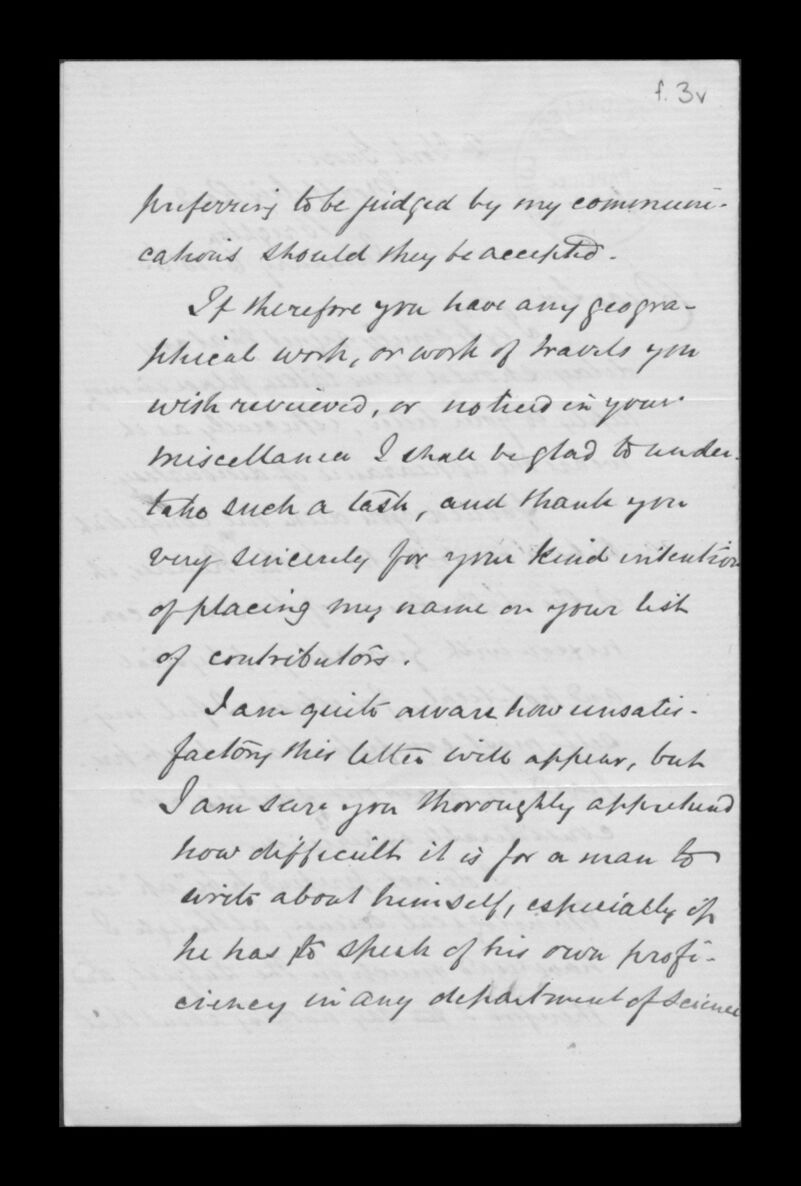 f. 3v
preferring to be judged by my communi-
cations should they be accepted.
If therefore you have any geogra-
phical work, or work of travels you
wish reviewed, or noticed in your
miscellanea I shall be glad to under-
take such a task, and thank you
very sincerely for your kind intention
of placing my name on your list
of contributors.
I am quite aware how unsatis-
factory this letter will appear, but
I am sure you thoroughly apprehend
how difficult it is for a man to
write about himself, especially if
he has to speak of his own profi-
ciency in any department of science